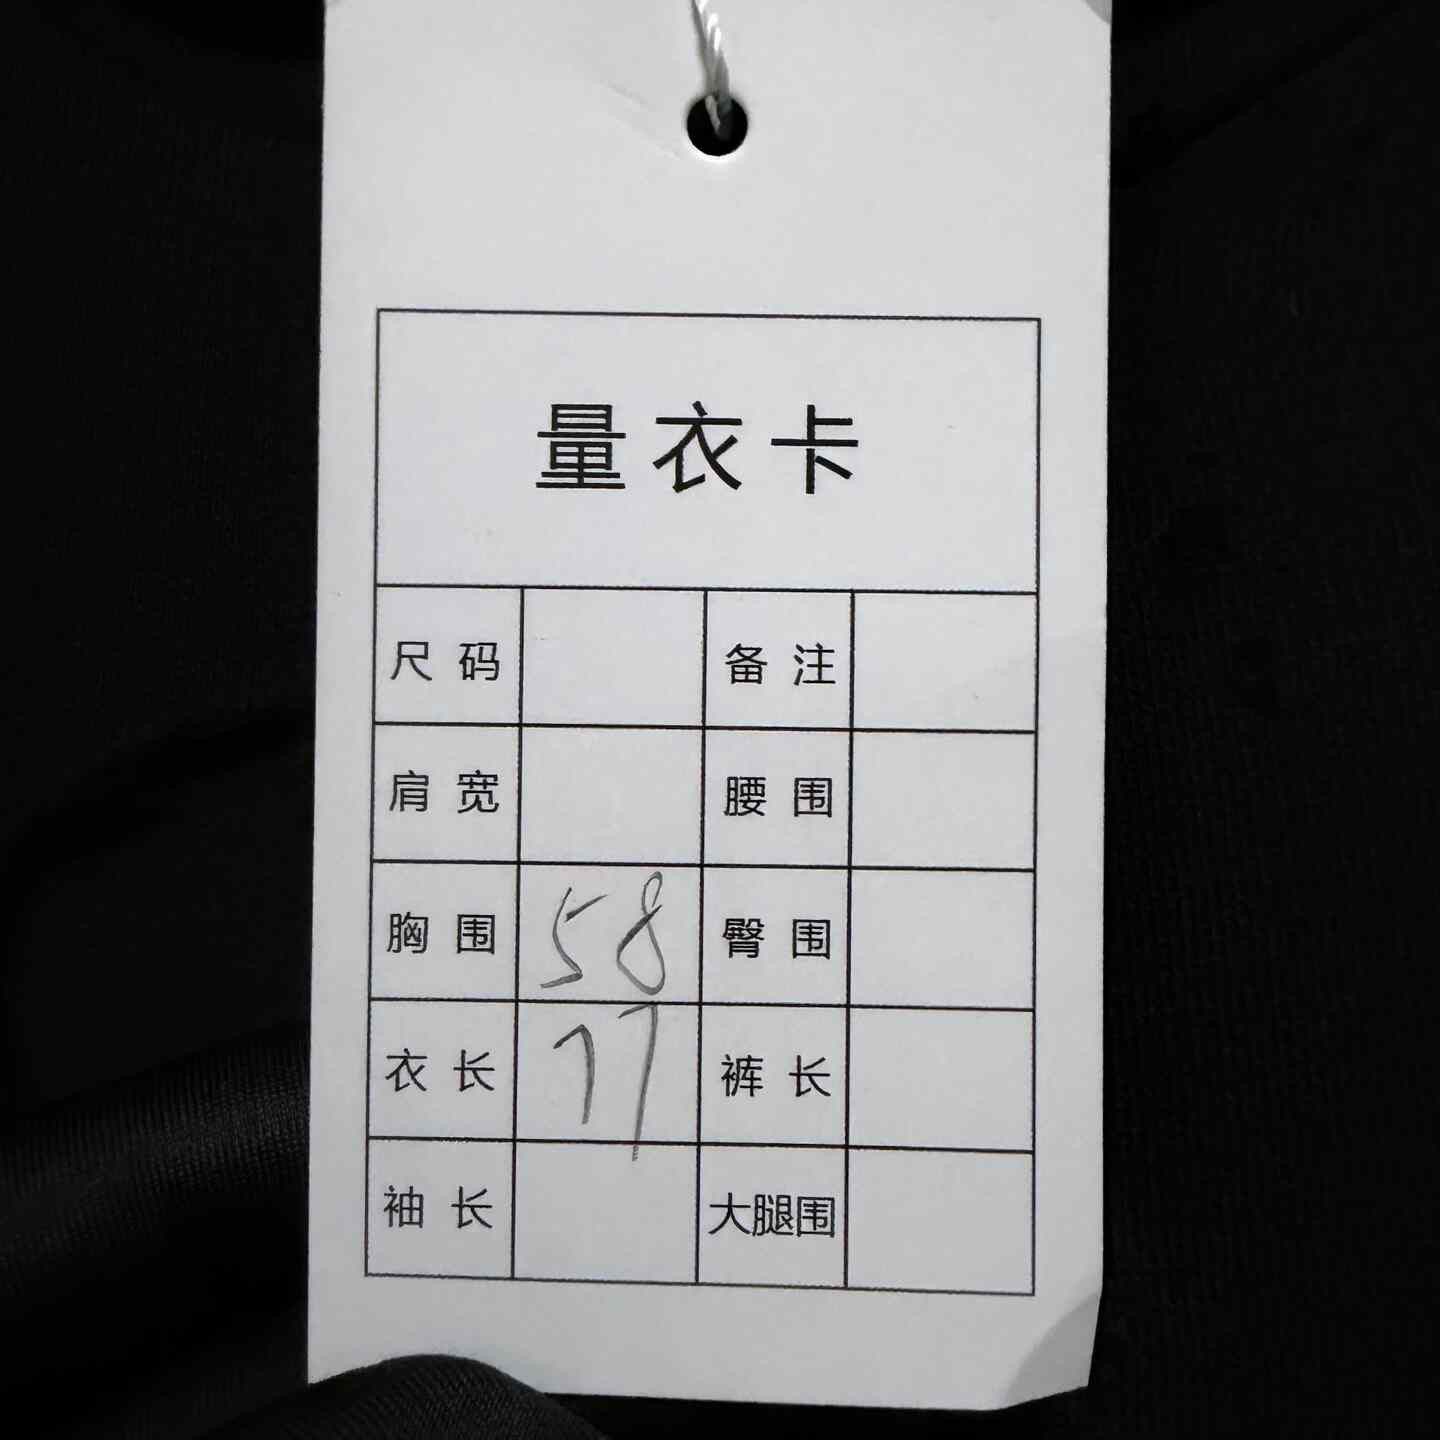 量衣卡
尺码 备注
肩宽 腰围
胸围 58 臀围
衣长 77 裤长
袖长 大腿围